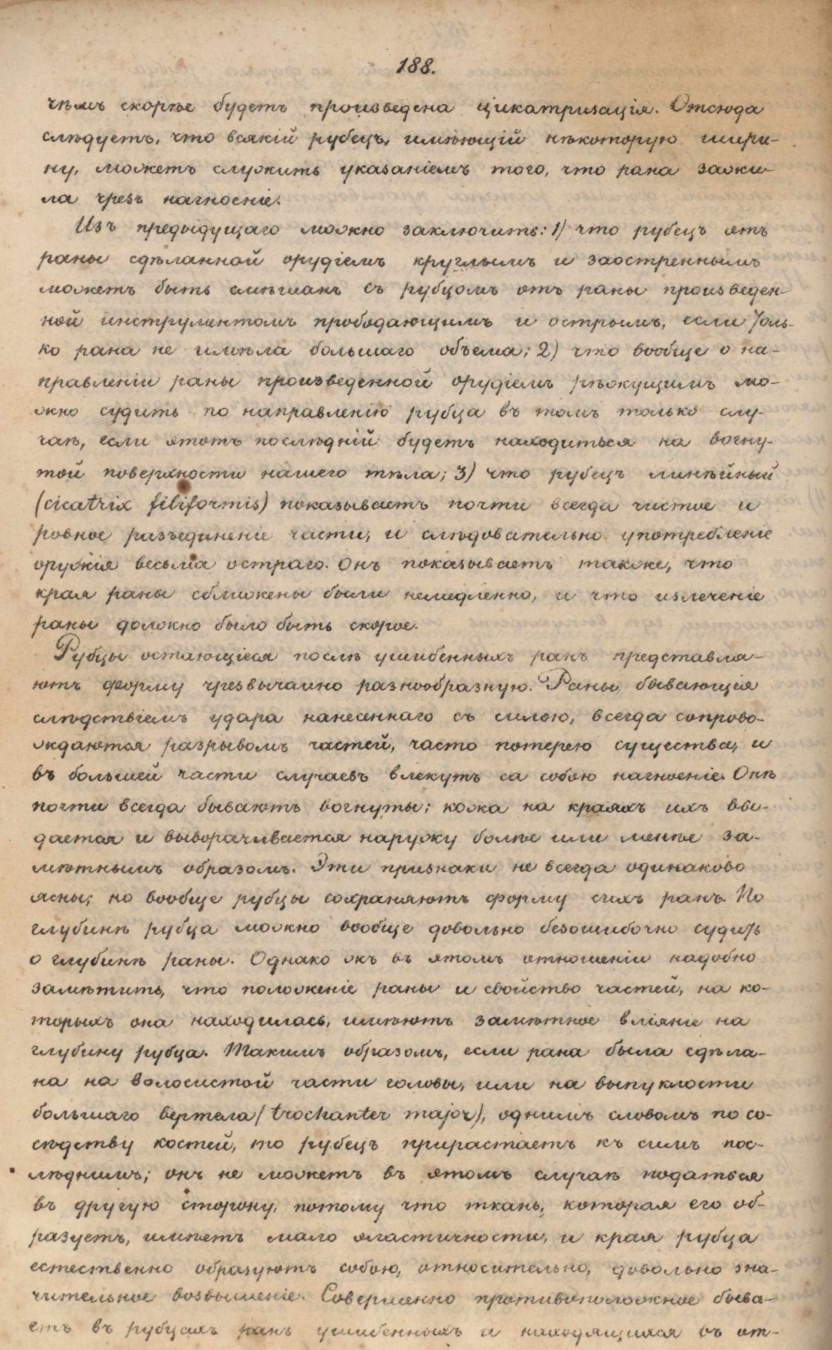 188.
чѣмъ скорѣе будетъ произведена цикатризація. Отсюда
слѣдуетъ, что всякій рубецъ, имѣющій нѣкоторую шири-
ну, можетъ служить указаніемъ того, что рана зажи-
ла чрезъ нагноеніе.
Изъ предыдущаго можно заключить: 1) что рубецъ отъ
раны сдѣланной орудіемъ круглымъ и заостреннымъ
можетъ быть смѣшанъ съ рубцомъ отъ раны произведен-
ной инструментомъ прободающимъ и острымъ, если толь-
ко рана не имѣла большаго объема; 2) что вообще о на-
правленіи раны произведенной орудіемъ рѣжущимъ мо-
жно судить по направленію рубца въ томъ только слу-
чаѣ, если этотъ послѣдній будетъ находиться на вогну-
той поверхности нашего тѣла; 3) что рубецъ линѣйный
(cicatrix filiformis) показываетъ почти всегда чистое и
ровное разъединеніе части, и слѣдовательно употребленіе
оружія весьма остраго. Онъ показываетъ также, что
края раны сближены были немедленно, и что излеченіе
раны должно было быть скорое.
Рубцы остающіеся послѣ ушибенныхъ ранъ представля-
ютъ форму чрезвычайно разнообразную. Раны, бывающія
слѣдствіемъ удара нанесеннаго съ силою, всегда сопрово-
ждаются разрывомъ частей, часто потерею существа, и
въ большей части случаевъ влекутъ за собою нагноеніе. Онѣ
почти всегда бываютъ вогнуты; кожа на краяхъ ихъ вви-
дается и выворачивается наружу болѣе или менѣе за-
мѣтнымъ образомъ. Эти признаки не всегда одинаково
ясны; но вообще рубцы сохраняютъ форму сихъ ранъ. По
глубинѣ рубца можно вообще довольно безошибочно судить
о глубинѣ раны. Однако жъ въ этомъ отношеніи надобно
замѣтить, что положеніе раны и свойство частей, на ко-
торыхъ она находилась, имѣютъ замѣтное вліяніе на
глубину рубца. Такимъ образомъ, если рана была сдѣла-
на на волосистой части головы, или на выпуклости
большаго вертела (trochanter major), однимъ словомъ по со-
сѣдству костей, то рубецъ прирастаетъ къ симъ пос-
лѣднимъ; онъ не можетъ въ этомъ случаѣ податься
въ другую сторону, потому что ткань, которая его об-
разуетъ, имѣетъ мало эластичности, и края рубца
естественно образуютъ собою, относительно, довольно зна-
чительное возвышеніе. Совершенно противоположное быва-
етъ въ рубцахъ ранъ ушибенныхъ и находящихся въ от-